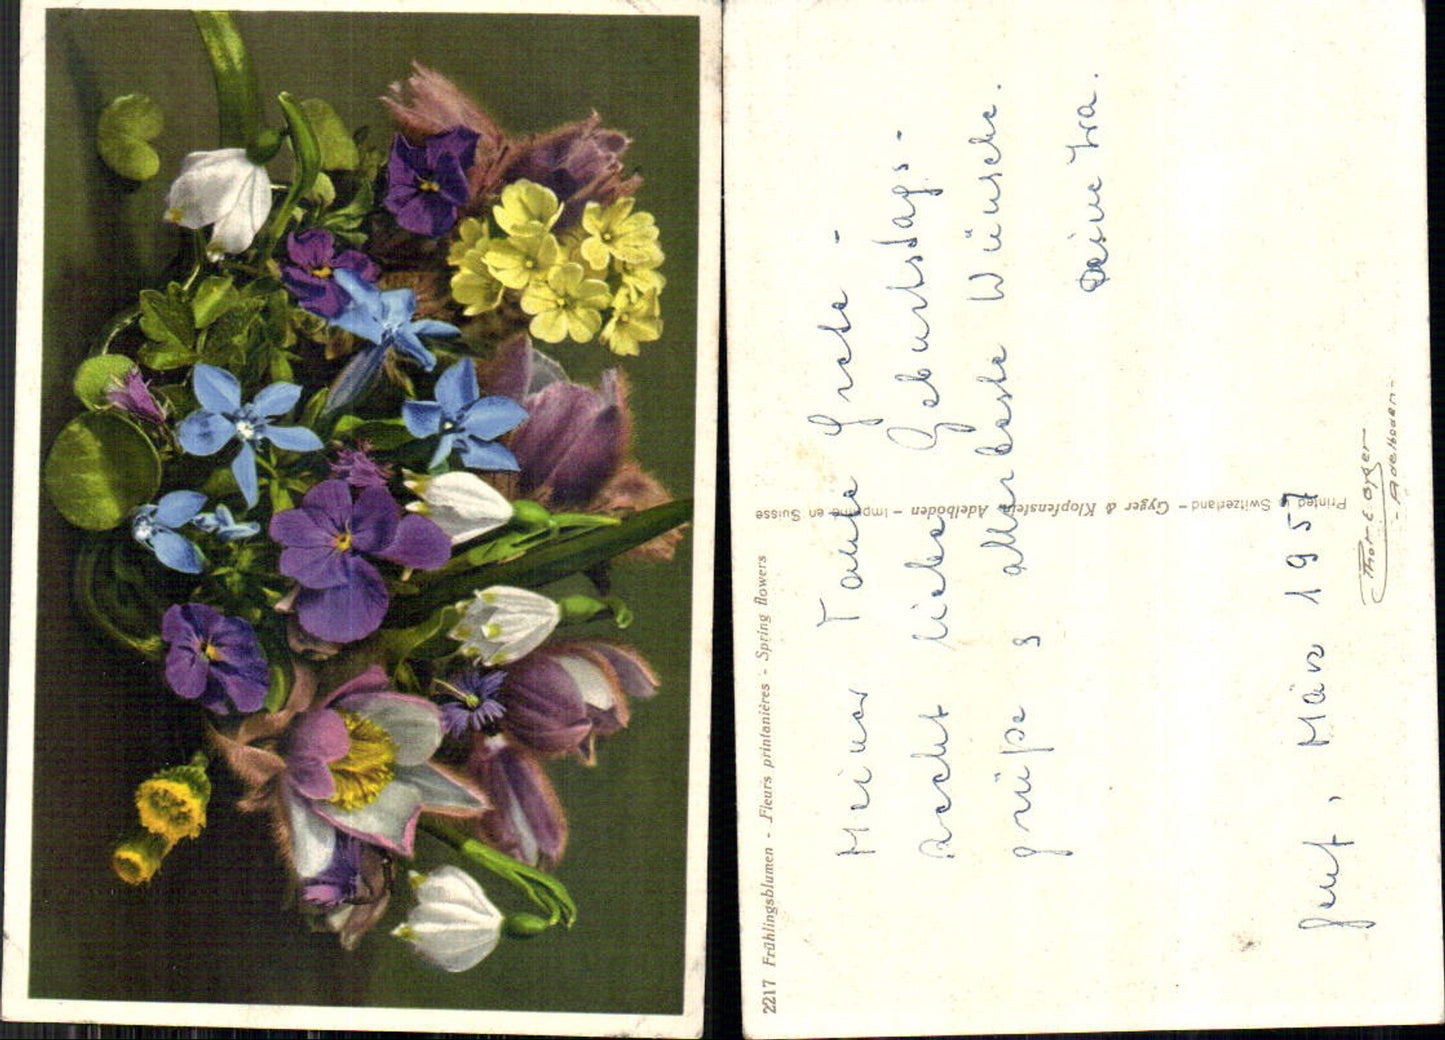 2217 Frühlingsblumen - Fleurs printanières - Spring flowers
Meiner Tante Grete -
Recht liebe Geburtstags-
grüße & allerbeste Wünsche.
Deine Ira.
Genf, März 1957
Printed in Switzerland - Gyger & Klopfenstein Adelboden - Imprimé en Suisse
Phot E Gyger
- Adelboden -